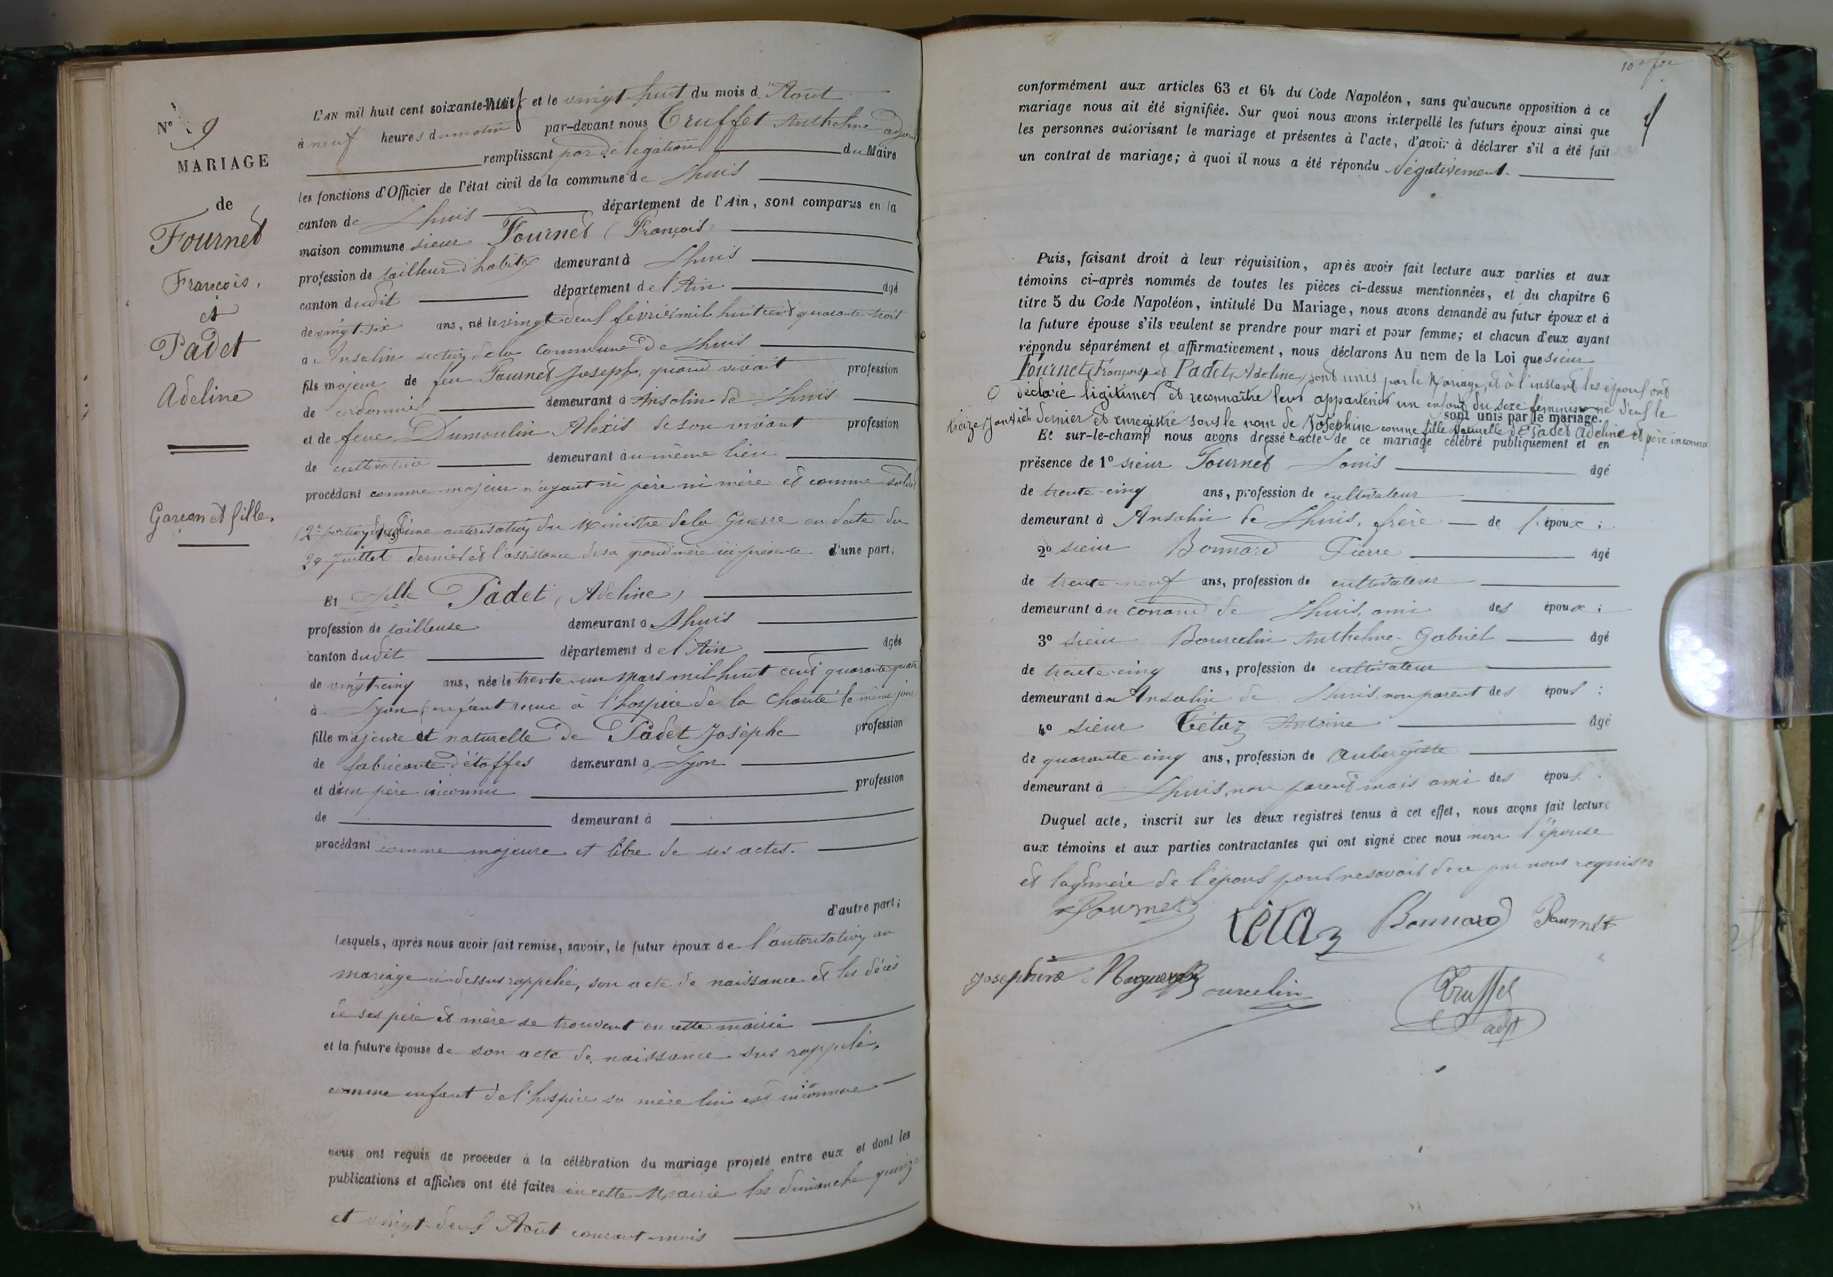 N° 9
MARIAGE
de
Fournet
François,
et
Padet
Adeline
Garçon et fille.
L'AN mil huit cent soixante-neuf et le vingt huit du mois d'Août
à neuf heures du matin par-devant nous Truffet Anthelme adjoint
remplissant par délégation du Maire
les fonctions d'Officier de l'état civil de la commune de Lhuis
canton de Lhuis département de l'Ain, sont comparus en la
maison commune sieur Fournet (François)
profession de tailleur d'habits demeurant à Lhuis
canton dudit département de l'Ain âgé
de vingt six ans, né le vingt deux février mil huit cent quarante trois
à Ansolin section de la commune de Lhuis
fils majeur de feu Fournet Joseph, quand vivait profession
de cordonnier demeurant à Ansolin de Lhuis
et de feue Dumoulin Alexis de son vivant profession
de cultivatrice demeurant au même lieu
procédant comme majeur n'ayant ni père ni mère et comme soldat
autorisation du Ministre de la Guerre en date du
29 juillet dernier et l'assistance de sa grand'mère ici présente d'une part.
Et Delle Padet (Adeline)
profession de tailleuse demeurant à Lhuis
canton dudit département de l'Ain âgée
de vingt cinq ans, née le trente un mars mil huit cent quarante quatre
à Lyon, enfant reçue à l'hospice de la Charité le même jour
fille majeure et naturelle de Padet Josèphe profession
de fabricante d'étoffes demeurant à Lyon
et d'un père inconnu profession
de demeurant à
procédant comme majeure et libre de ses actes.
d'autre part;
Lesquels, après nous avoir fait remise, savoir, le futur époux de l'autorisation au
mariage ci-dessus rappelée, son acte de naissance et les décès
de ses père et mère se trouvent en cette mairie
et la future épouse de son acte de naissance sus rappelé,
comme enfant de l'hospice sa mère lui est inconnue
nous ont requis de procéder à la célébration du mariage projeté entre eux et dont les
publications et affiches ont été faites en cette Mairie les dimanche quinze
et vingt-deux Août courant mois
conformément aux articles 63 et 64 du Code Napoléon, sans qu'aucune opposition à ce
mariage nous ait été signifiée. Sur quoi nous avons interpellé les futurs époux ainsi que
les personnes autorisant le mariage et présentes à l'acte, d'avoir à déclarer s'il a été fait
un contrat de mariage; à quoi il nous a été répondu Négativement.
Puis, faisant droit à leur réquisition, après avoir fait lecture aux parties et aux
témoins ci-après nommés de toutes les pièces ci-dessus mentionnées, et du chapitre 6
titre 5 du Code Napoléon, intitulé Du Mariage, nous avons demandé au futur époux et à
la future épouse s'ils veulent se prendre pour mari et pour femme; et chacun d'eux ayant
répondu séparément et affirmativement, nous déclarons Au nom de la Loi que sieur
Fournet, François et Padet, Adeline, sont unis par le Mariage, et à l'instant les époux ont
déclaré légitimer et reconnaître leur appartenir un enfant du sexe féminin né d'eux le
treize Janvier dernier et enregistré sous le nom de Joséphine comme fille naturelle de Padet Adeline et père inconnu
sont unis par le mariage.
Et sur-le-champ nous avons dressé acte de ce mariage célébré publiquement et en
présence de 1° sieur Fournet Louis âgé
de trente-cinq ans, profession de cultivateur
demeurant à Ansolin de Lhuis, frère de l'époux;
2° sieur Bonnard Pierre âgé
de trente-neuf ans, profession de cultivateur
demeurant à de Lhuis, ami des époux;
3° sieur Bourcelin Anthelme-Gabriel âgé
de trente-cinq ans, profession de cultivateur
demeurant à Ansolin de Lhuis non parent des époux;
4° sieur Tétaz Antoine âgé
de quarante-cinq ans, profession de Aubergiste
demeurant à Lhuis, non parent mais ami des époux.
Duquel acte, inscrit sur les deux registres tenus à cet effet, nous avons fait lecture
aux témoins et aux parties contractantes qui ont signé avec nous non l'épouse
et la g'mère de l'époux pour ne savoir de ce par nous requises
Fournet
Tétaz Bonnard Fournet
Joséphine Bourcelin
Truffet
adjt